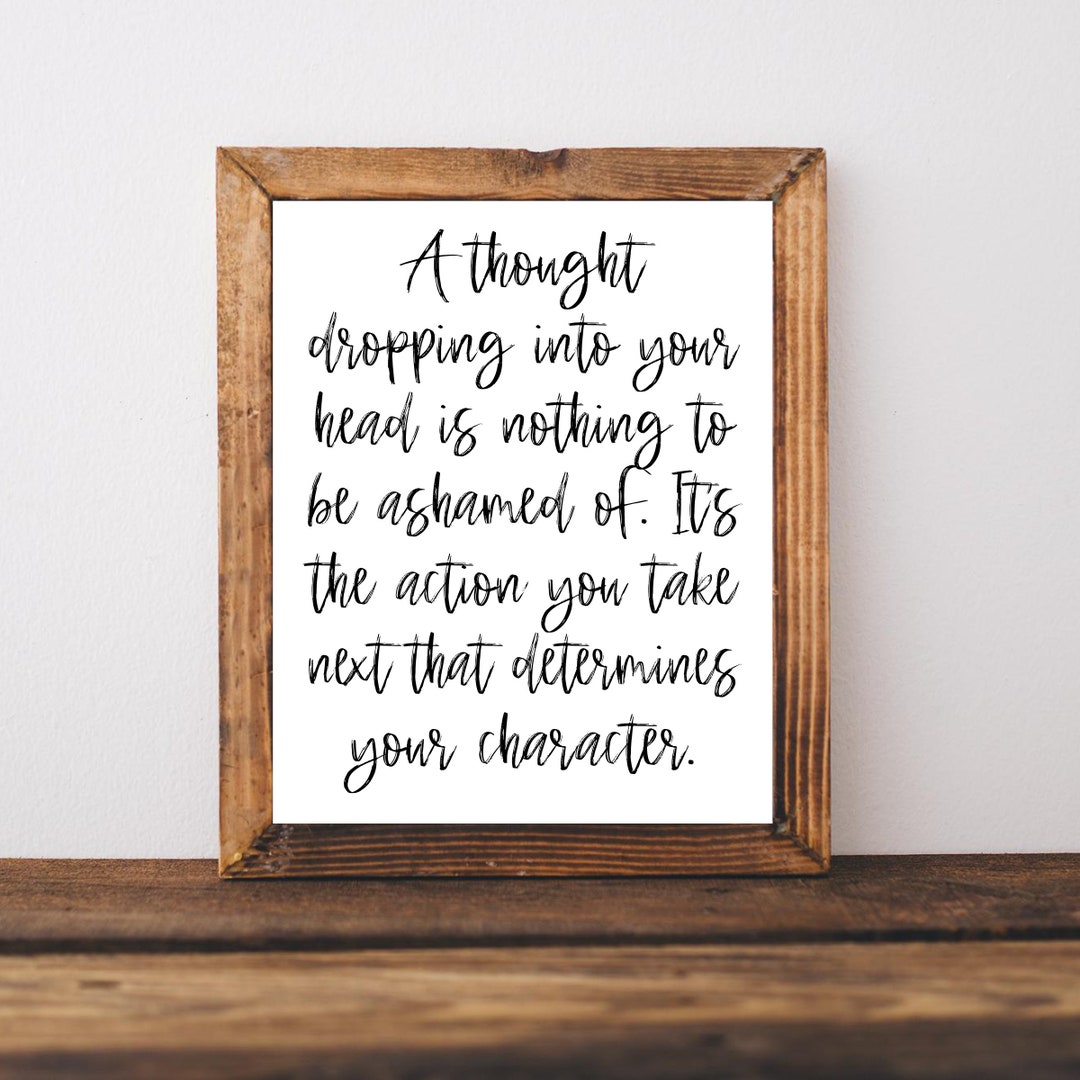 A thought
dropping into your
head is nothing to
be ashamed of. It's
the action you take
next that determines
your character.